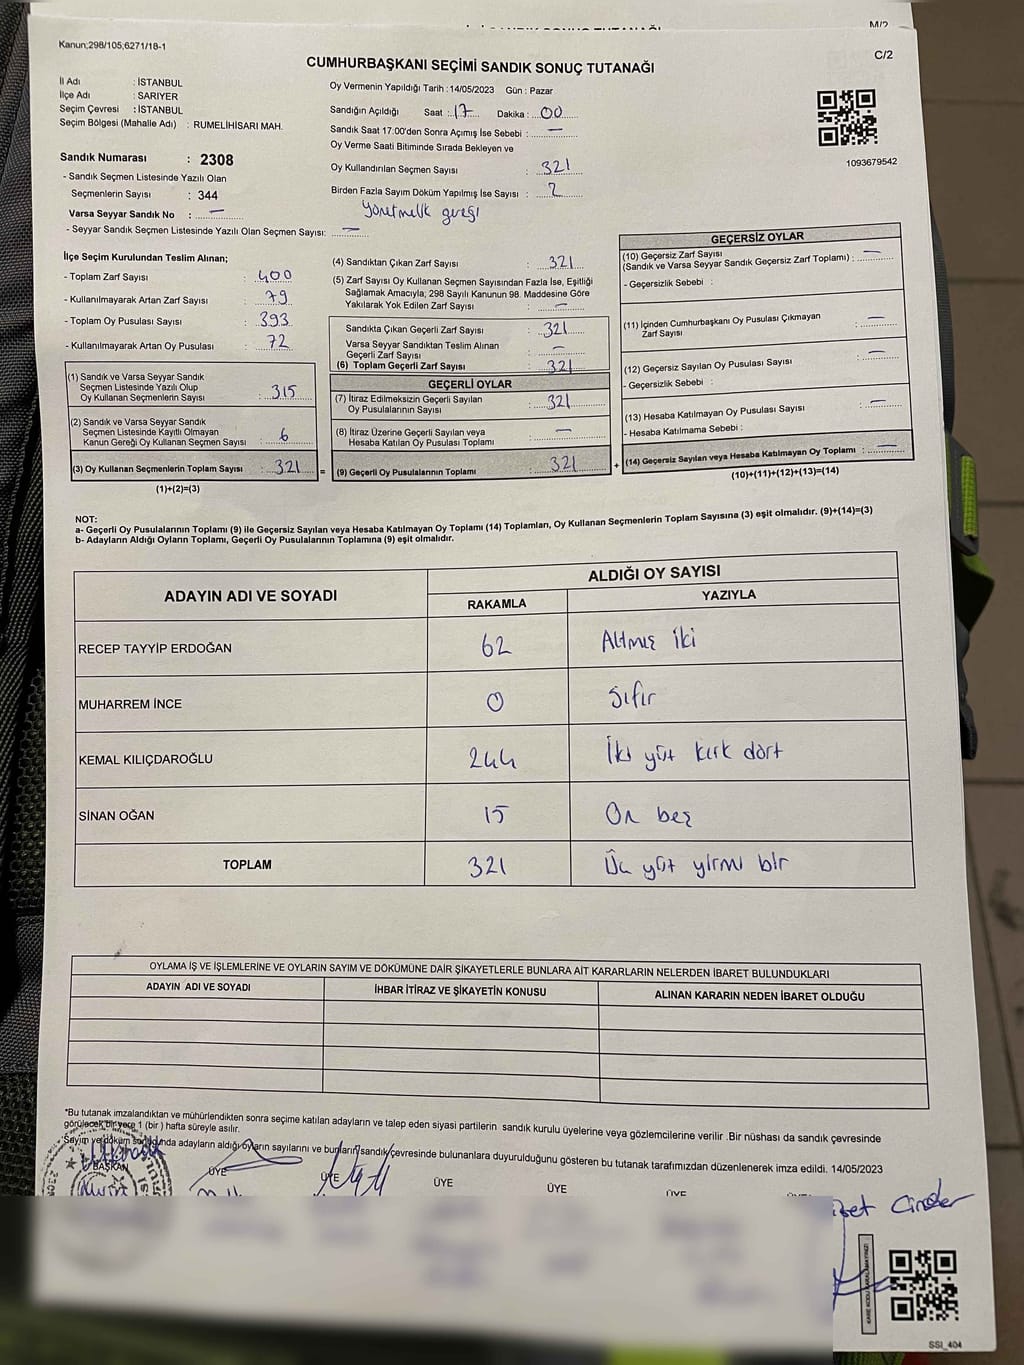 M/2
Kanun;298/105;6271/18-1
C/2
CUMHURBAŞKANI SEÇİMİ SANDIK SONUÇ TUTANAĞI
İl Adı : İSTANBUL
İlçe Adı : SARIYER
Seçim Çevresi : İSTANBUL
Seçim Bölgesi (Mahalle Adı) : RUMELİHİSARI MAH.
Sandık Numarası : 2308
- Sandık Seçmen Listesinde Yazılı Olan
Seçmenlerin Sayısı : 344
Varsa Seyyar Sandık No : —
- Seyyar Sandık Seçmen Listesinde Yazılı Olan Seçmen Sayısı: —
Oy Vermenin Yapıldığı Tarih : 14/05/2023 Gün : Pazar
Sandığın Açıldığı Saat : 17 Dakika : 00
Sandık Saat 17:00'den Sonra Açımış İse Sebebi : —
Oy Verme Saati Bitiminde Sırada Bekleyen ve
Oy Kullandırılan Seçmen Sayısı : 321
Birden Fazla Sayım Döküm Yapılmış İse Sayısı : 2
Yönetmelik gereği
1093679542
İlçe Seçim Kurulundan Teslim Alınan;
- Toplam Zarf Sayısı : 400
- Kullanılmayarak Artan Zarf Sayısı : 79
- Toplam Oy Pusulası Sayısı : 393
- Kullanılmayarak Artan Oy Pusulası : 72
(1) Sandık ve Varsa Seyyar Sandık
Seçmen Listesinde Yazılı Olup
Oy Kullanan Seçmenlerin Sayısı : 315
(2) Sandık ve Varsa Seyyar Sandık
Seçmen Listesinde Kayıtlı Olmayan
Kanun Gereği Oy Kullanan Seçmen Sayısı : 6
(3) Oy Kullanan Seçmenlerin Toplam Sayısı : 321 =
(1)+(2)=(3)
(4) Sandıktan Çıkan Zarf Sayısı : 321
(5) Zarf Sayısı Oy Kullanan Seçmen Sayısından Fazla İse, Eşitliği
Sağlamak Amacıyla; 298 Sayılı Kanunun 98. Maddesine Göre
Yakılarak Yok Edilen Zarf Sayısı : —
Sandıkta Çıkan Geçerli Zarf Sayısı : 321
Varsa Seyyar Sandıktan Teslim Alınan
Geçerli Zarf Sayısı : —
(6) Toplam Geçerli Zarf Sayısı : 321
GEÇERLİ OYLAR
(7) İtiraz Edilmeksizin Geçerli Sayılan
Oy Pusulalarının Sayısı : 321
(8) İtiraz Üzerine Geçerli Sayılan veya
Hesaba Katılan Oy Pusulası Toplamı : —
(9) Geçerli Oy Pusulalarının Toplamı : 321 +
GEÇERSİZ OYLAR
(10) Geçersiz Zarf Sayısı
(Sandık ve Varsa Seyyar Sandık Geçersiz Zarf Toplamı) : —
- Geçersizlik Sebebi :
(11) İçinden Cumhurbaşkanı Oy Pusulası Çıkmayan
Zarf Sayısı : —
(12) Geçersiz Sayılan Oy Pusulası Sayısı : —
- Geçersizlik Sebebi :
(13) Hesaba Katılmayan Oy Pusulası Sayısı : —
- Hesaba Katılmama Sebebi :
(14) Geçersiz Sayılan veya Hesaba Katılmayan Oy Toplamı : —
(10)+(11)+(12)+(13)=(14)
NOT:
a- Geçerli Oy Pusulalarının Toplamı (9) ile Geçersiz Sayılan veya Hesaba Katılmayan Oy Toplamı (14) Toplamları, Oy Kullanan Seçmenlerin Toplam Sayısına (3) eşit olmalıdır. (9)+(14)=(3)
b- Adayların Aldığı Oyların Toplamı, Geçerli Oy Pusulalarının Toplamına (9) eşit olmalıdır.
ADAYIN ADI VE SOYADI
ALDIĞI OY SAYISI
RAKAMLA YAZIYLA
RECEP TAYYİP ERDOĞAN 62 Altmış iki
MUHARREM İNCE 0 Sıfır
KEMAL KILIÇDAROĞLU 244 İki yüz kırk dört
SİNAN OĞAN 15 On beş
TOPLAM 321 Üç yüz yirmi bir
OYLAMA İŞ VE İŞLEMLERİNE VE OYLARIN SAYIM VE DÖKÜMÜNE DAİR ŞİKAYETLERLE BUNLARA AİT KARARLARIN NELERDEN İBARET BULUNDUKLARI
ADAYIN ADI VE SOYADI İHBAR İTİRAZ VE ŞİKAYETİN KONUSU ALINAN KARARIN NEDEN İBARET OLDUĞU
*Bu tutanak imzalandıktan ve mühürlendikten sonra seçime katılan adayların ve talep eden siyasi partilerin sandık kurulu üyelerine veya gözlemcilerine verilir .Bir nüshası da sandık çevresinde
görülecek bir yere 1 (bir ) hafta süreyle asılır.
Sayım ve döküm sonunda adayların aldığı oyların sayılarını ve bunların sandık çevresinde bulunanlara duyurulduğunu gösteren bu tutanak tarafımızdan düzenlenerek imza edildi. 14/05/2023
BAŞKAN ÜYE ÜYE ÜYE ÜYE ÜYE
SSI_404